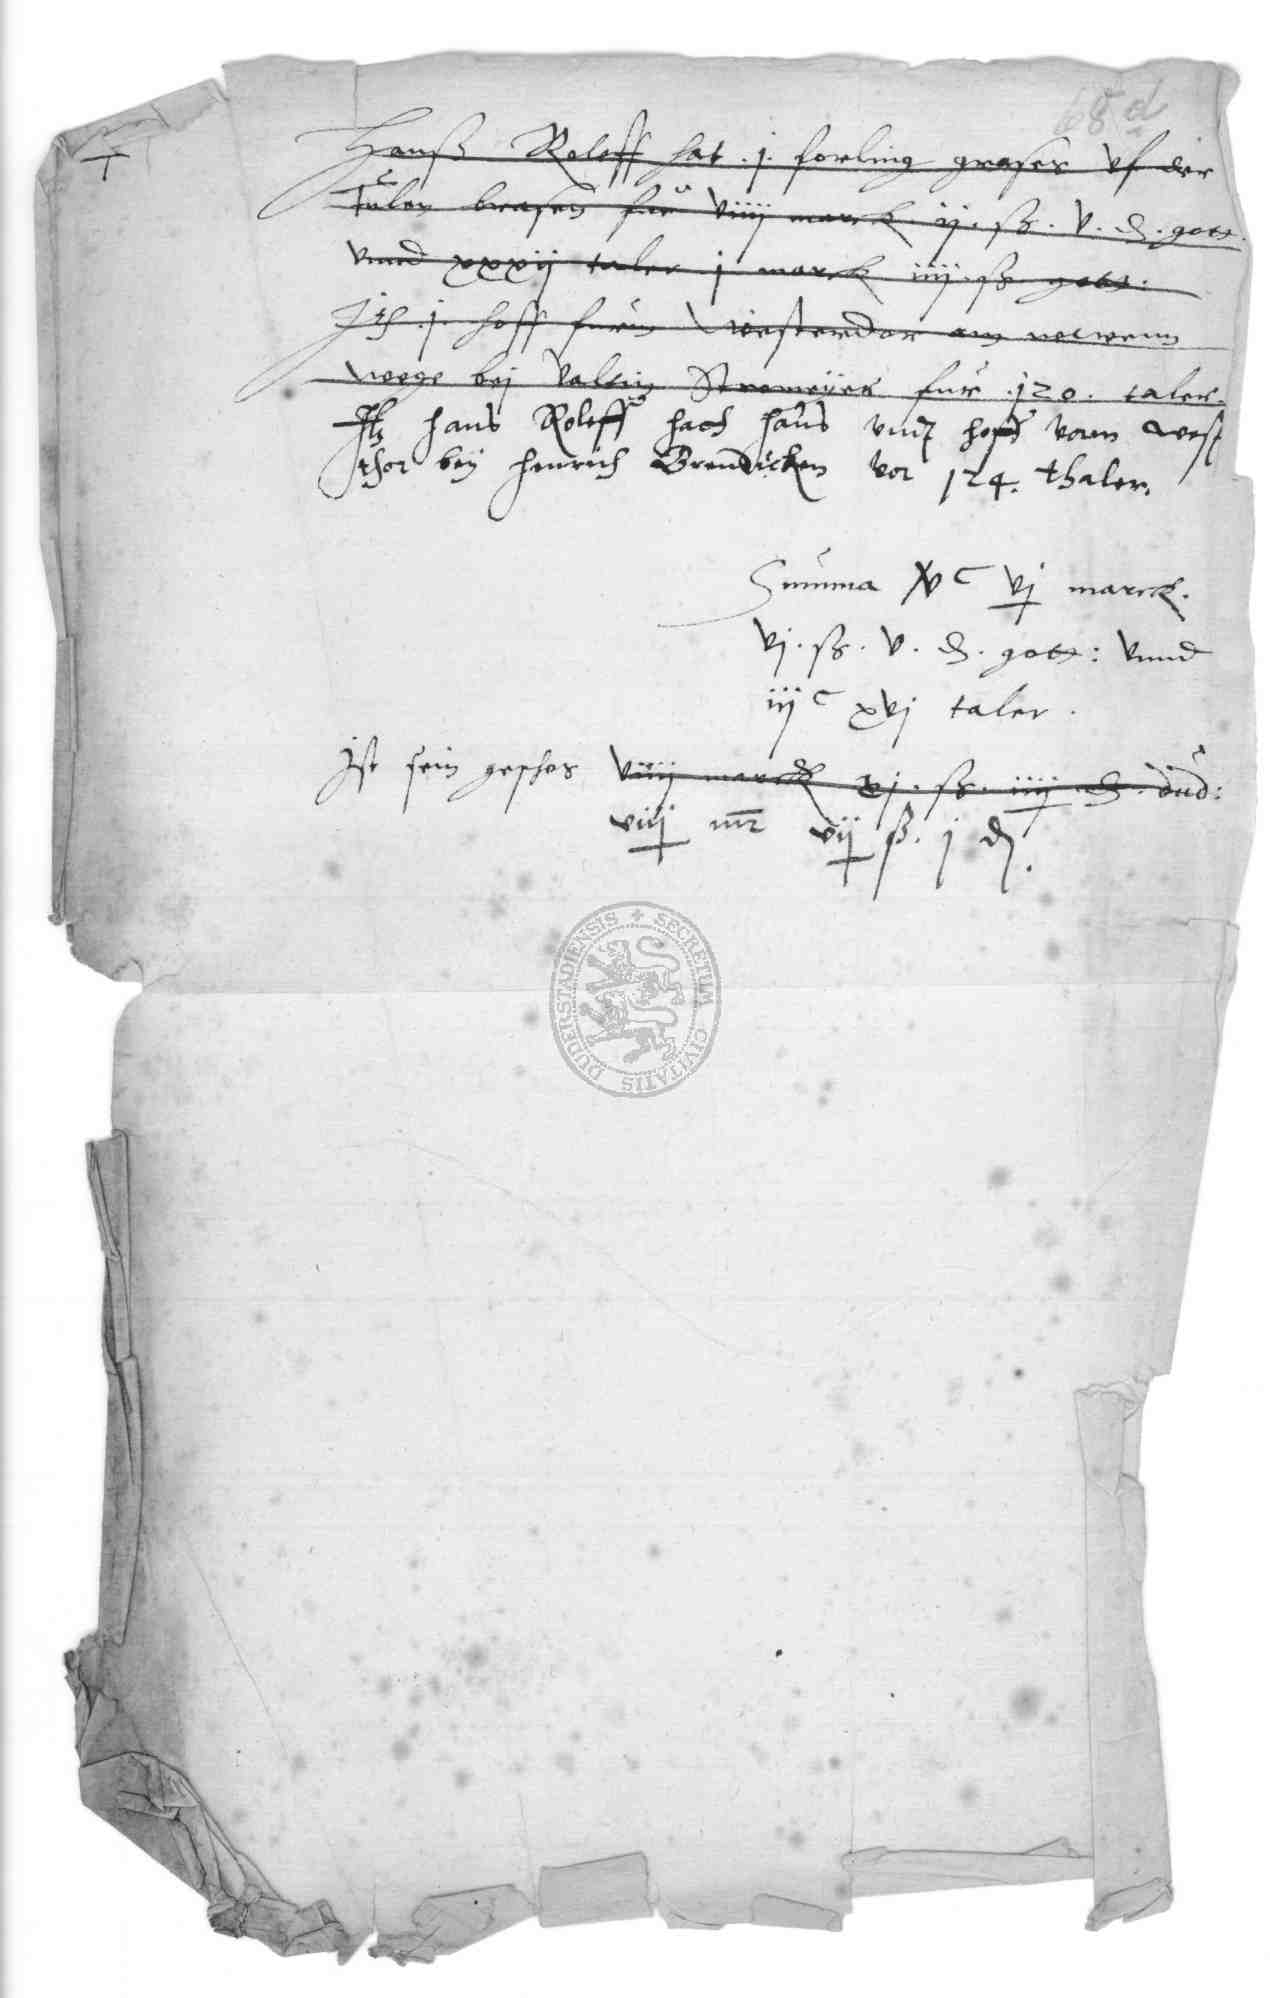 68 d
Hanß Roloff hat .j. forling grases uf der
Tulen brasen fur viiij marck ij. ß. v. d. gott.
vnnd xxxij taler j marck iiij. ß gott.
Jtem .j. hoff furm Westerdor am
wege bej Valtin Stromeyer fur .120. taler.
Jtem Hans Roloff hatt haus vnd hoff vorm West
thor bey Henrich Brendicken vor 124. thaler.
Summa xv c vj marck.
vj. ß. v. d. gott: vnnd
iij c xvj taler.
Jst sein geschos viiij marck xj. ß. iiij. d. dud:
viij mr vij ß. j d.
SECRETUM CIVITATIS DUDERSTADIENSIS